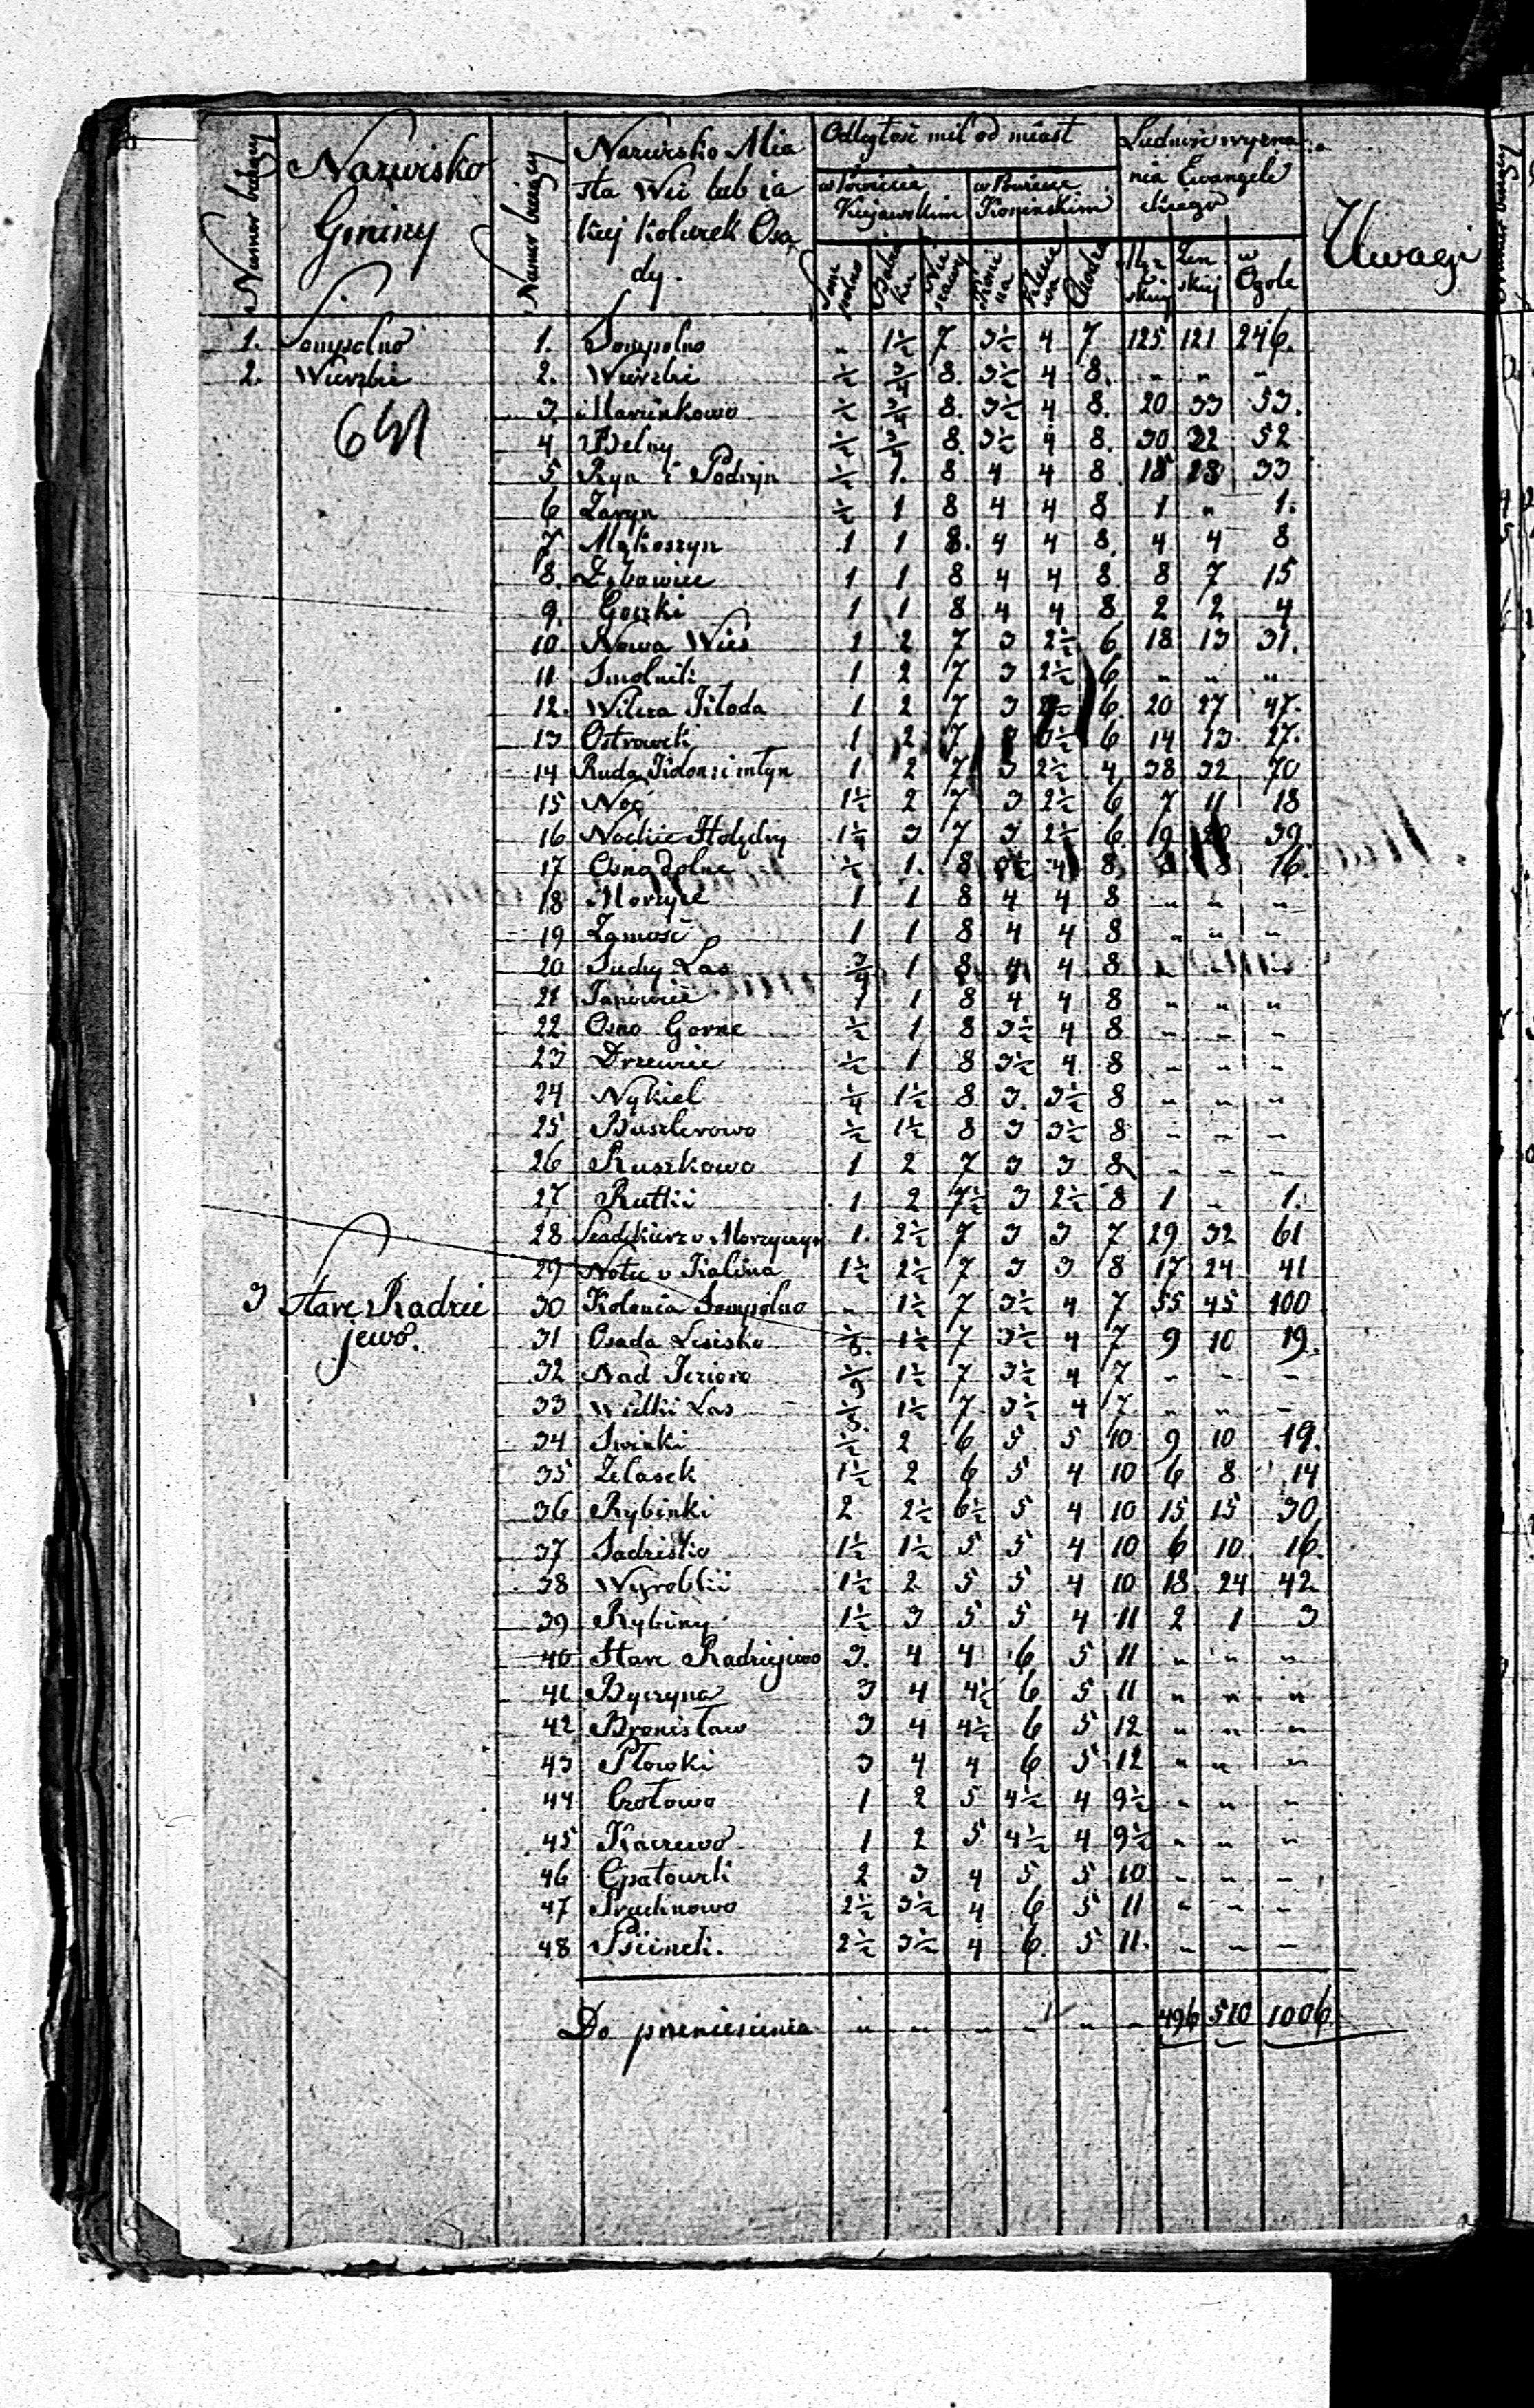 Numer bieżący
Nazwisko
Gminy
Numer bieżący
Nazwisko Mia
sta Wsi lub ia
kiej kolwiek Osa
dy.
Odległość mil od miast
w Powiecie
Kujawskim
w Powiecie
Konińskim
Ludność wyzna
nia Ewangeli
ckiego
w
Ogole
Uwagi
1. Sompolno 1. Sompolno " 1½ 7 3½ 4 7 125 121 246.
2. Wierzbie 2. Wierzbie ½ ¾ 8. 3½ 4 8. " " "
3 Marinkowo ½ ¾ 8. 3½ 4 8. 20 33 53.
4 Belny ½ ¾ 8. 3½ 4 8. 30 22 52
5 Ryn i Podryn ½ 1. 8 4 4 8. 15 18 33
6 Zaryn ½ 1 8 4 4 8 1 " 1.
7 Mąkoszyn 1 1 8. 4 4 8. 4 4 8
8. Lubawice 1 1 8 4 4 8 8 7 15
9. Gorki 1 1 8 4 4 8 2 2 4
10 Nowa Wies 1 2 7 3 2½ 6 18 13 31.
11 Smolniki 1 2 7 3 2½ 6 " " "
12. Wilcza Kłoda 1 2 7 3 6. 20 27 47.
13 Ostrowek 1 2 7 6 14 13 27.
14 Ruda Kolon: i młyn 1 2 7 3 2½ 4 38 32 70
15 Noć 1½ 2 7 3 2½ 6 7 11 18
16 Nockie Holędry 1¼ 3 7 3 2½ 6. 19 20 39
17 Osno dolne ½ 1. 8 4 8 8 16.
18 Morzyce 1 1 8 4 4 8 " " "
19 Zamość 1 1 8 4 4 8 " " "
20 Suchy Las ¾ 1 8 4 4 8 " " "
21 Janowice 1 1 8 4 4 8 " " "
22 Osno Gorne ½ 1 8 3½ 4 8 " " "
23 Drzewie ½ 1 8 3½ 4 8 " " "
24 Nykiel ¼ 1½ 8 3. 3½ 8 " " "
25 Buszlerowo ½ 1½ 8 3 3½ 8 " " "
26 Ruszkowo 1 2 7 3 3 8 " " "
27 Rutki 1 2 7½ 3 2½ 8 1 " 1.
28 v Morzyczyn 1. 2½ 7 3 3 7 29 32 61
29 v Kalina 1½ 2½ 7 3 3 8 17 24 41
3 Stare Radzie 30 Kolonia Sompolno " 1½ 7 3½ 4 7 55 45 100
jewo. 31 Osada Lisisko 1½ 7 3½ 4 7 9 10 19.
32 Nad Jezioro 1½ 7 3½ 4 7 " " "
33 Wielki Las 1½ 7 3½ 4 7 " " "
34 Swinki ½ 2 6 5 5 10 9 10 19.
35 Zelasek 1½ 2 6 5 4 10 6 8 14
36 Rybinki 2 2½ 6½ 5 4 10 15 15 30
37 Sadzisko 1½ 1½ 5 5 4 10 6 10 16.
38 Wyroblii 1½ 2 5 5 4 10 18 24 42
39 Rybiny 1½ 3 5 5 4 11 2 1 3
40 Stare Radziejewo 3. 4 4 6 5 11 " " "
41 Byczyna 3 4 4½ 6 5 11 " " "
42 Bronisław 3 4 4½ 6 5 12 " " "
43 Płowki 3 4 4 6 5 12 " " "
44 Czołowo 1 2 5 4½ 4 9½ " " "
45 Kaczewo 1 2 5 4½ 4 9½ " " "
46 Opatowki 2 3 4 5 5 10 " " "
47 Pruchnowo 2½ 3½ 4 6 5 11 " " "
48 Pścinek. 2½ 3½ 4 6. 5 11. " " "
Do przeniesienia " " " " " " 496 510 1006